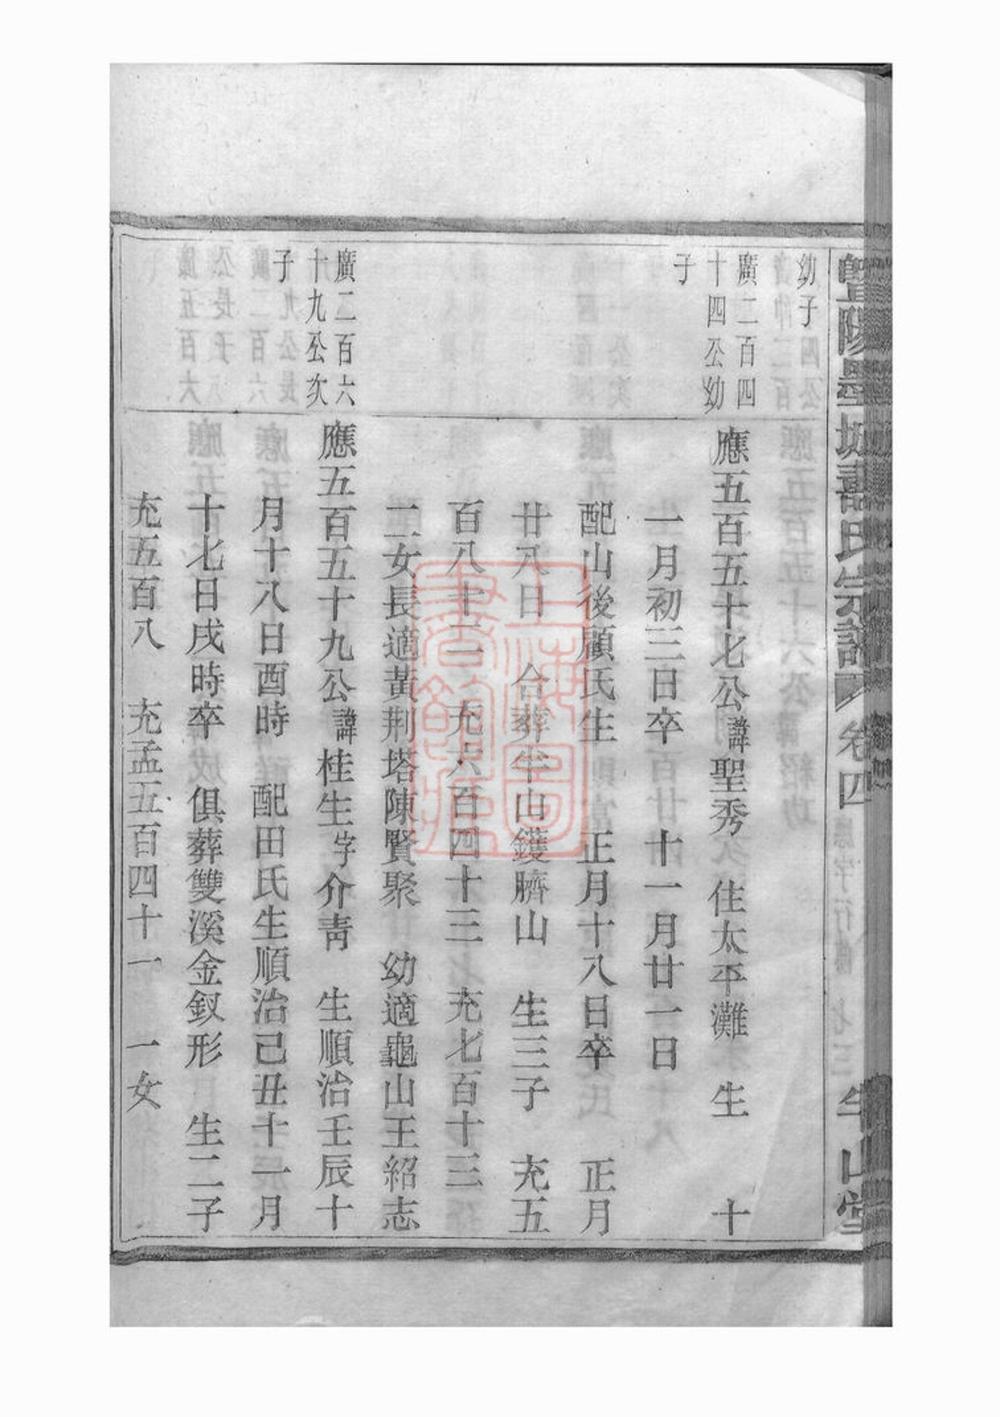 暨陽墨城壽氏宗譜 卷四 應字行傳 七二 半山堂
幼子
廣二百四
十四公幼
子
應五百五十七公諱聖秀 住太平灘 生 十
一月初三日卒 十一月廿一日
配山後顧氏生 正月十八日卒 正月
廿八日 合葬半山鑊臍山 生三子 充五
百八十二 充六百四十三 充七百十三
二女長適黃荆塔陳賢聚 幼適龜山王紹志
廣二百六
十九公次
子
應五百五十九公諱桂生字介靑 生順治壬辰十
月十八日酉時 配田氏生順治己丑十一月
十七日戌時卒 俱葬雙溪金釵形 生二子
充五百八 充孟五百四十一 一女